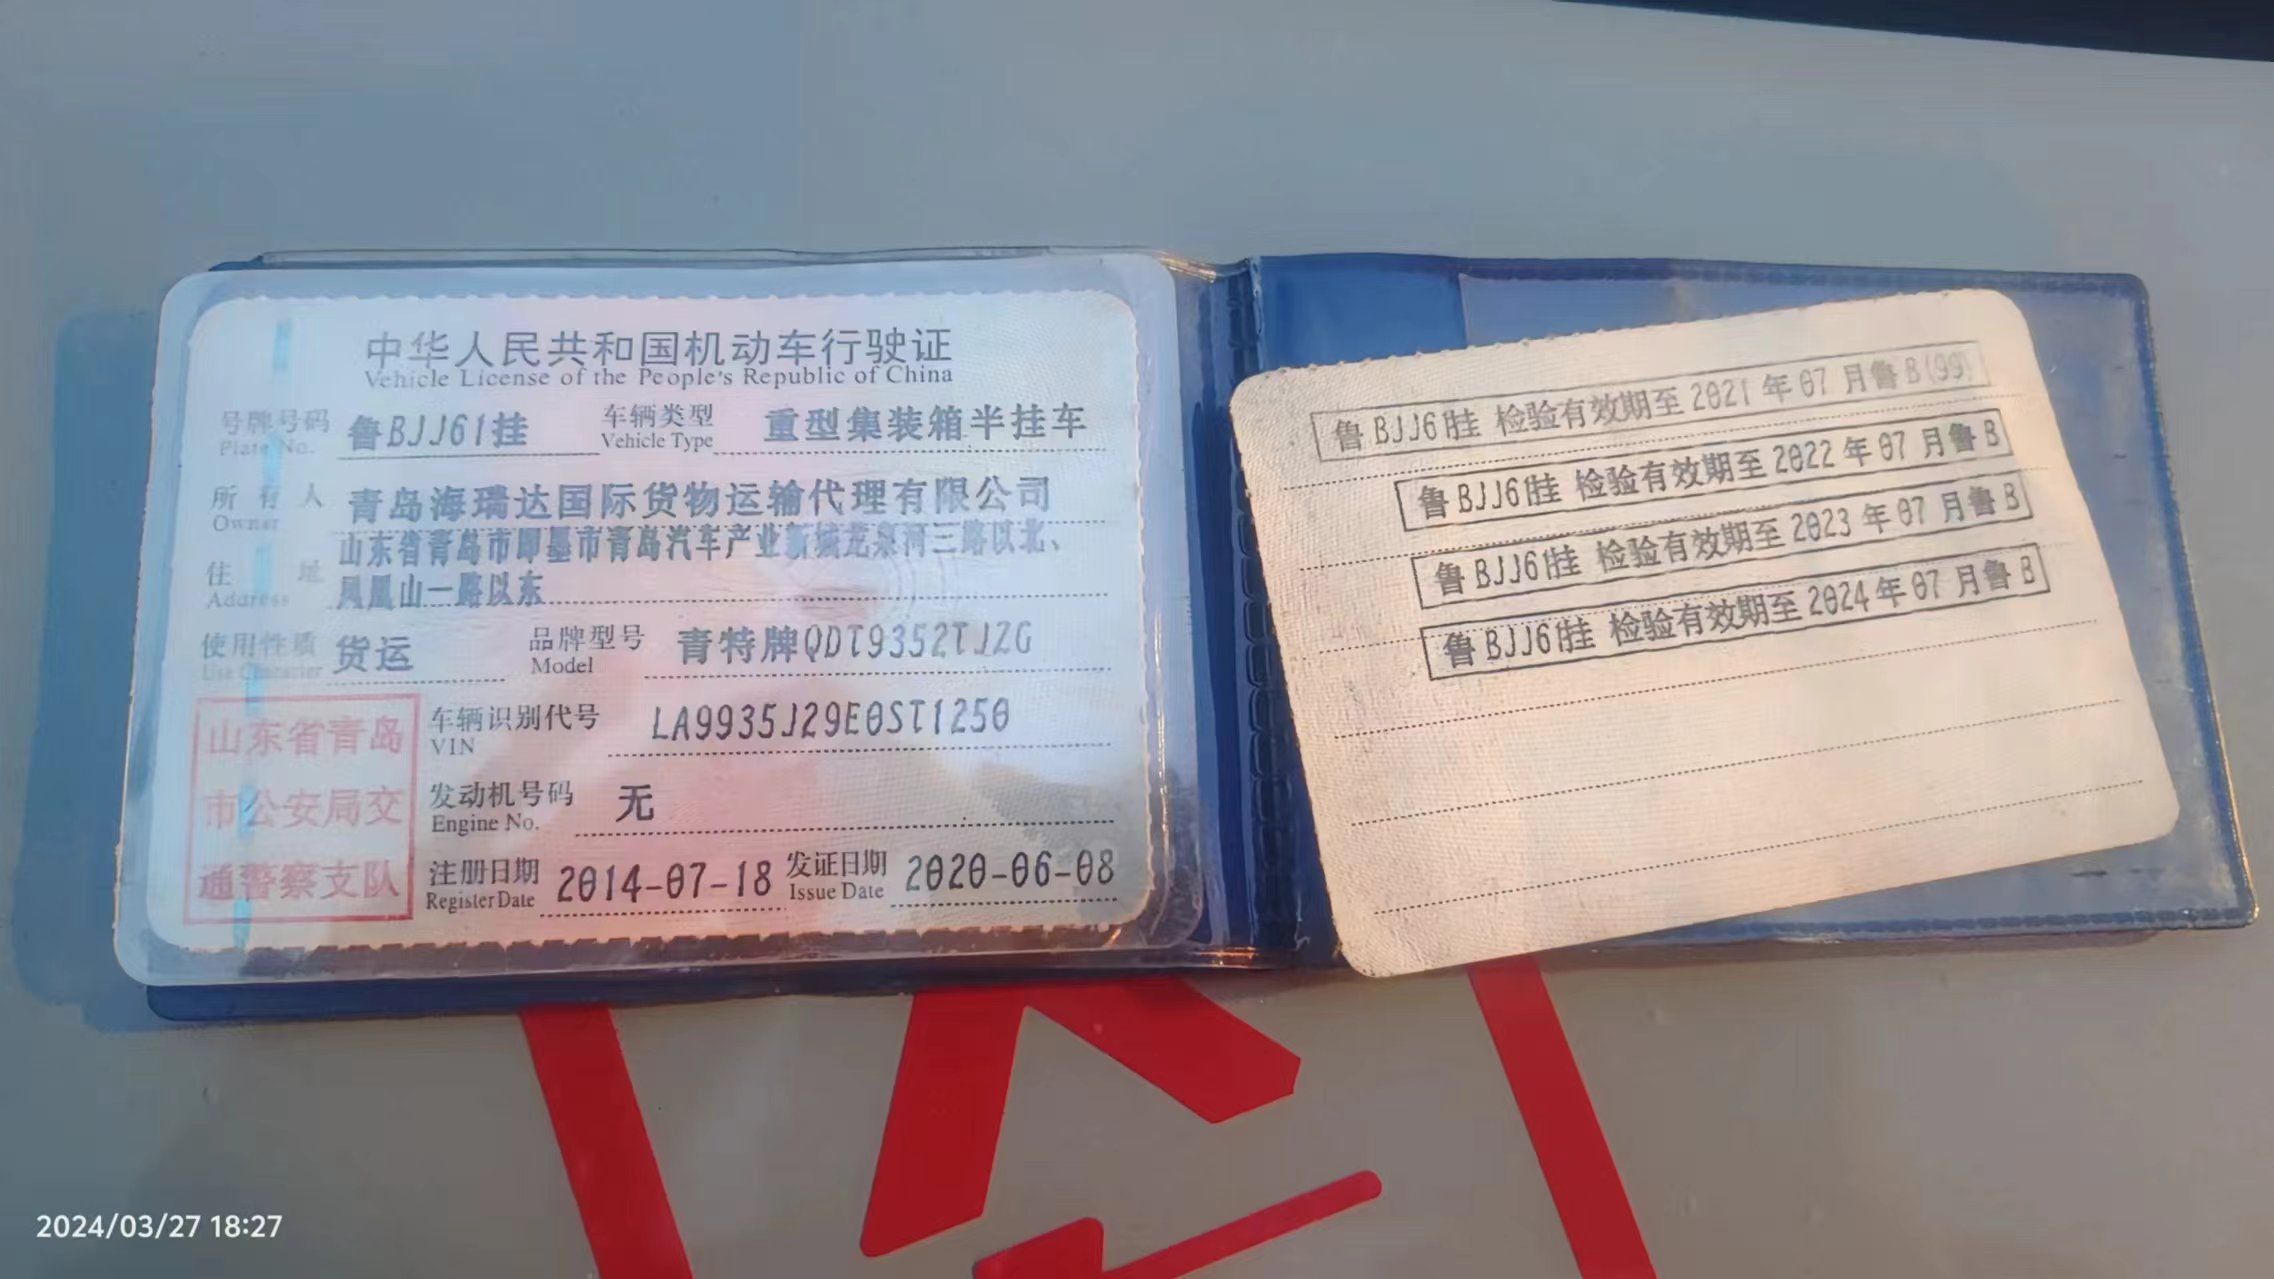 中华人民共和国机动车行驶证
Vehicle License of the People's Republic of China
号牌号码 鲁BJJ61挂 车辆类型 重型集装箱半挂车
Plate No. Vehicle Type
所有人 青岛海瑞达国际货物运输代理有限公司
Owner
住址 山东省青岛市即墨市青岛汽车产业新城龙泉河三路以北、
Address 凤凰山一路以东
使用性质 货运 品牌型号 青特牌QDT9352TJZG
Use Character Model
车辆识别代号 LA9935J29E0ST1250
VIN
发动机号码 无
Engine No.
注册日期 2014-07-18 发证日期 2020-06-08
Register Date Issue Date
山东省青岛
市公安局交
通警察支队
鲁BJJ61挂 检验有效期至2021年07月鲁B(99)
鲁BJJ61挂 检验有效期至2022年07月鲁B
鲁BJJ61挂 检验有效期至2023年07月鲁B
鲁BJJ61挂 检验有效期至2024年07月鲁B
2024/03/27 18:27